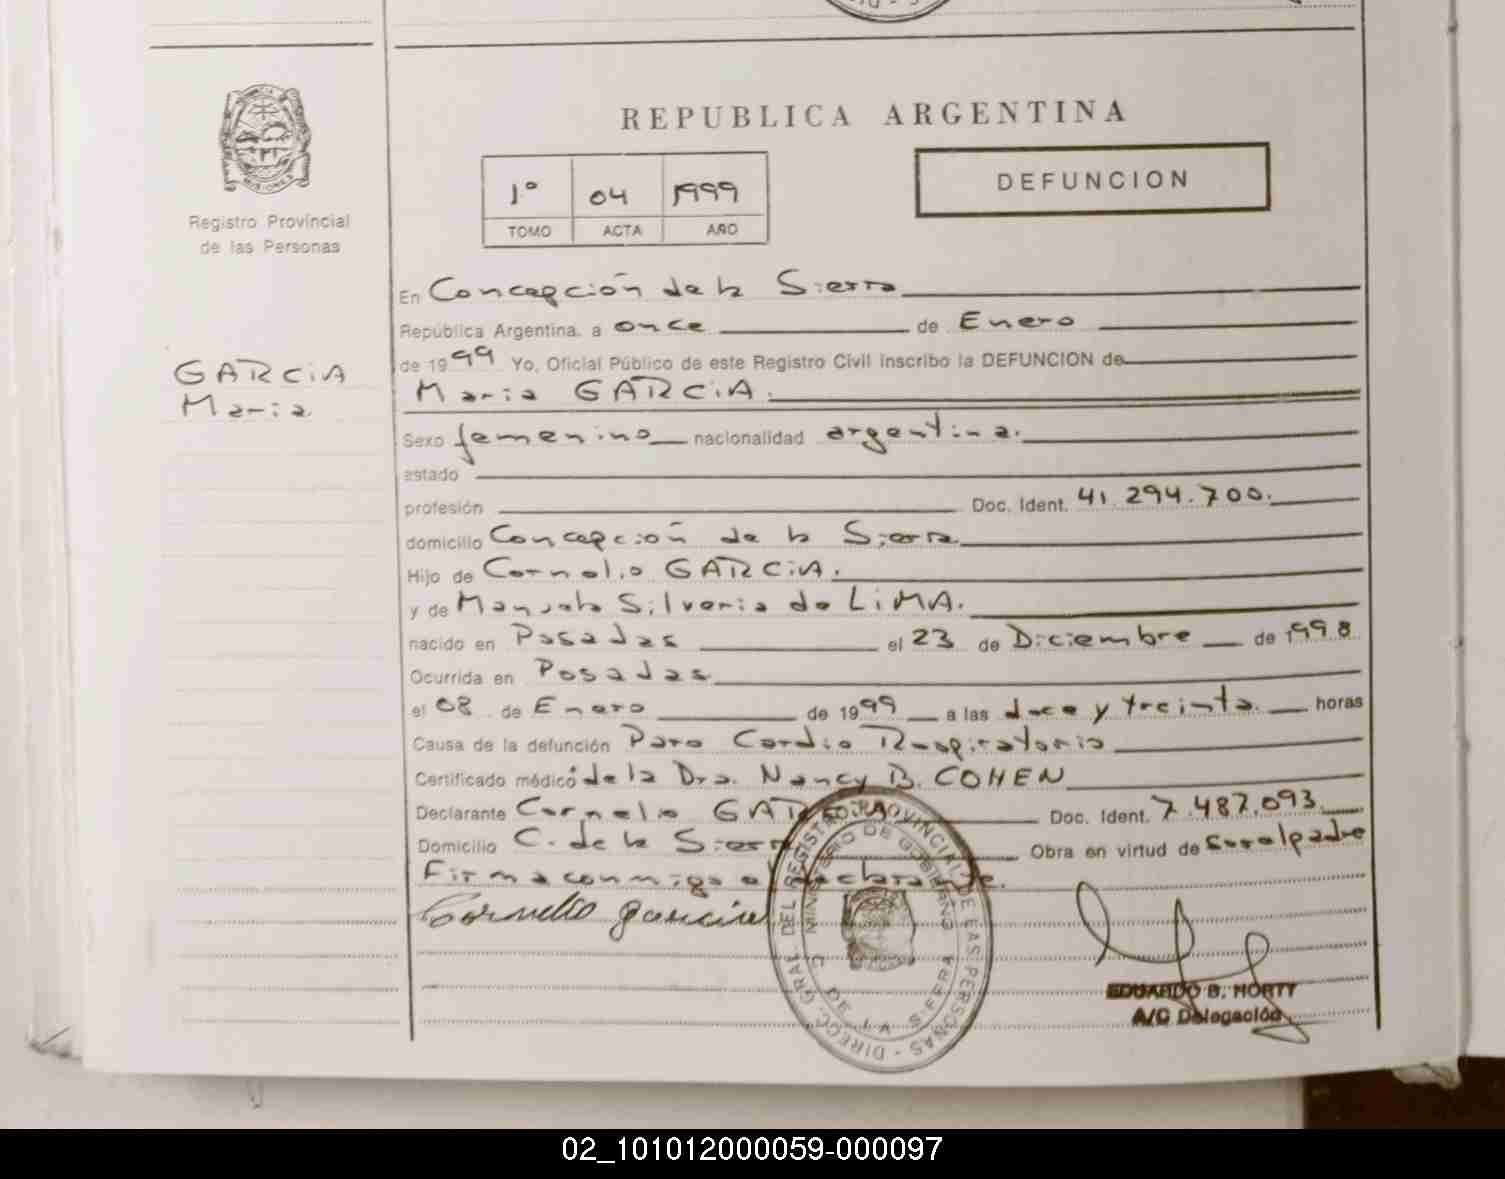 MISIONES
Registro Provincial
de las Personas
GARCiA
Maria
REPUBLICA ARGENTINA
1º 04 1999
TOMO ACTA AÑO
DEFUNCION
En Concepción de la Sierra
República Argentina, a once de Enero
de 1999 Yo, Oficial Público de este Registro Civil inscribo la DEFUNCION de
Maria GARCiA.
Sexo femenino nacionalidad argentina.
estado
profesión Doc. Ident. 41.294.700.
domicilio Concepción de la Sierra
Hijo de Cornelio GARCiA.
y de Manuela Silveria de LiMA.
nacido en Posadas el 23 de Diciembre de 1998
Ocurrida en Posadas
el 08 de Enero de 1999 a las doce y treinta. horas
Causa de la defunción Paro Cardio Respiratorio
Certificado médico de la Dra. Nancy B. COHEN
Declarante Cornelio GARCiA Doc. Ident. 7.487.093
Domicilio C. de la Sierra Obra en virtud de ser el padre
Firma conmigo el declarante.
Cornelio garcia
DIREC. GRAL. DEL REGISTRO PROVINCIAL DE LAS PERSONAS -
MINISTERIO DE GOBIERNO
C. DE LA SIERRA
EDUARDO B. HORTY
A/C Delegación
02_101012000059-000097